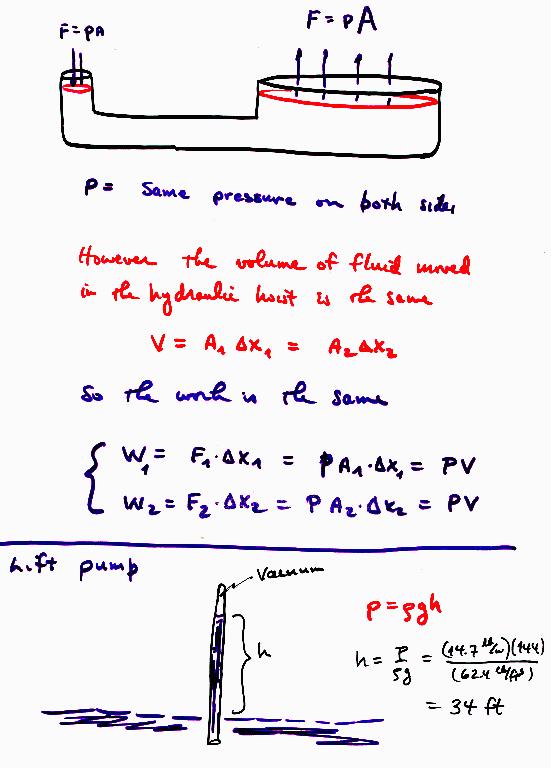 F = pA
F = pA
P = Same pressure on both sides
However the volume of fluid moved
in the hydraulic hoist is the same
V = A₁ Δx₁ = A₂ Δx₂
So the work is the same
W₁ = F₁·Δx₁ = pA₁·Δx₁ = PV
W₂ = F₂·Δx₂ = PA₂·Δx₂ = PV
Lift pump
Vacuum
h
p = ρgh
h = P/ρg = (14.7 lb/in)(144)/(62.4 lb/ft³)
= 34 ft